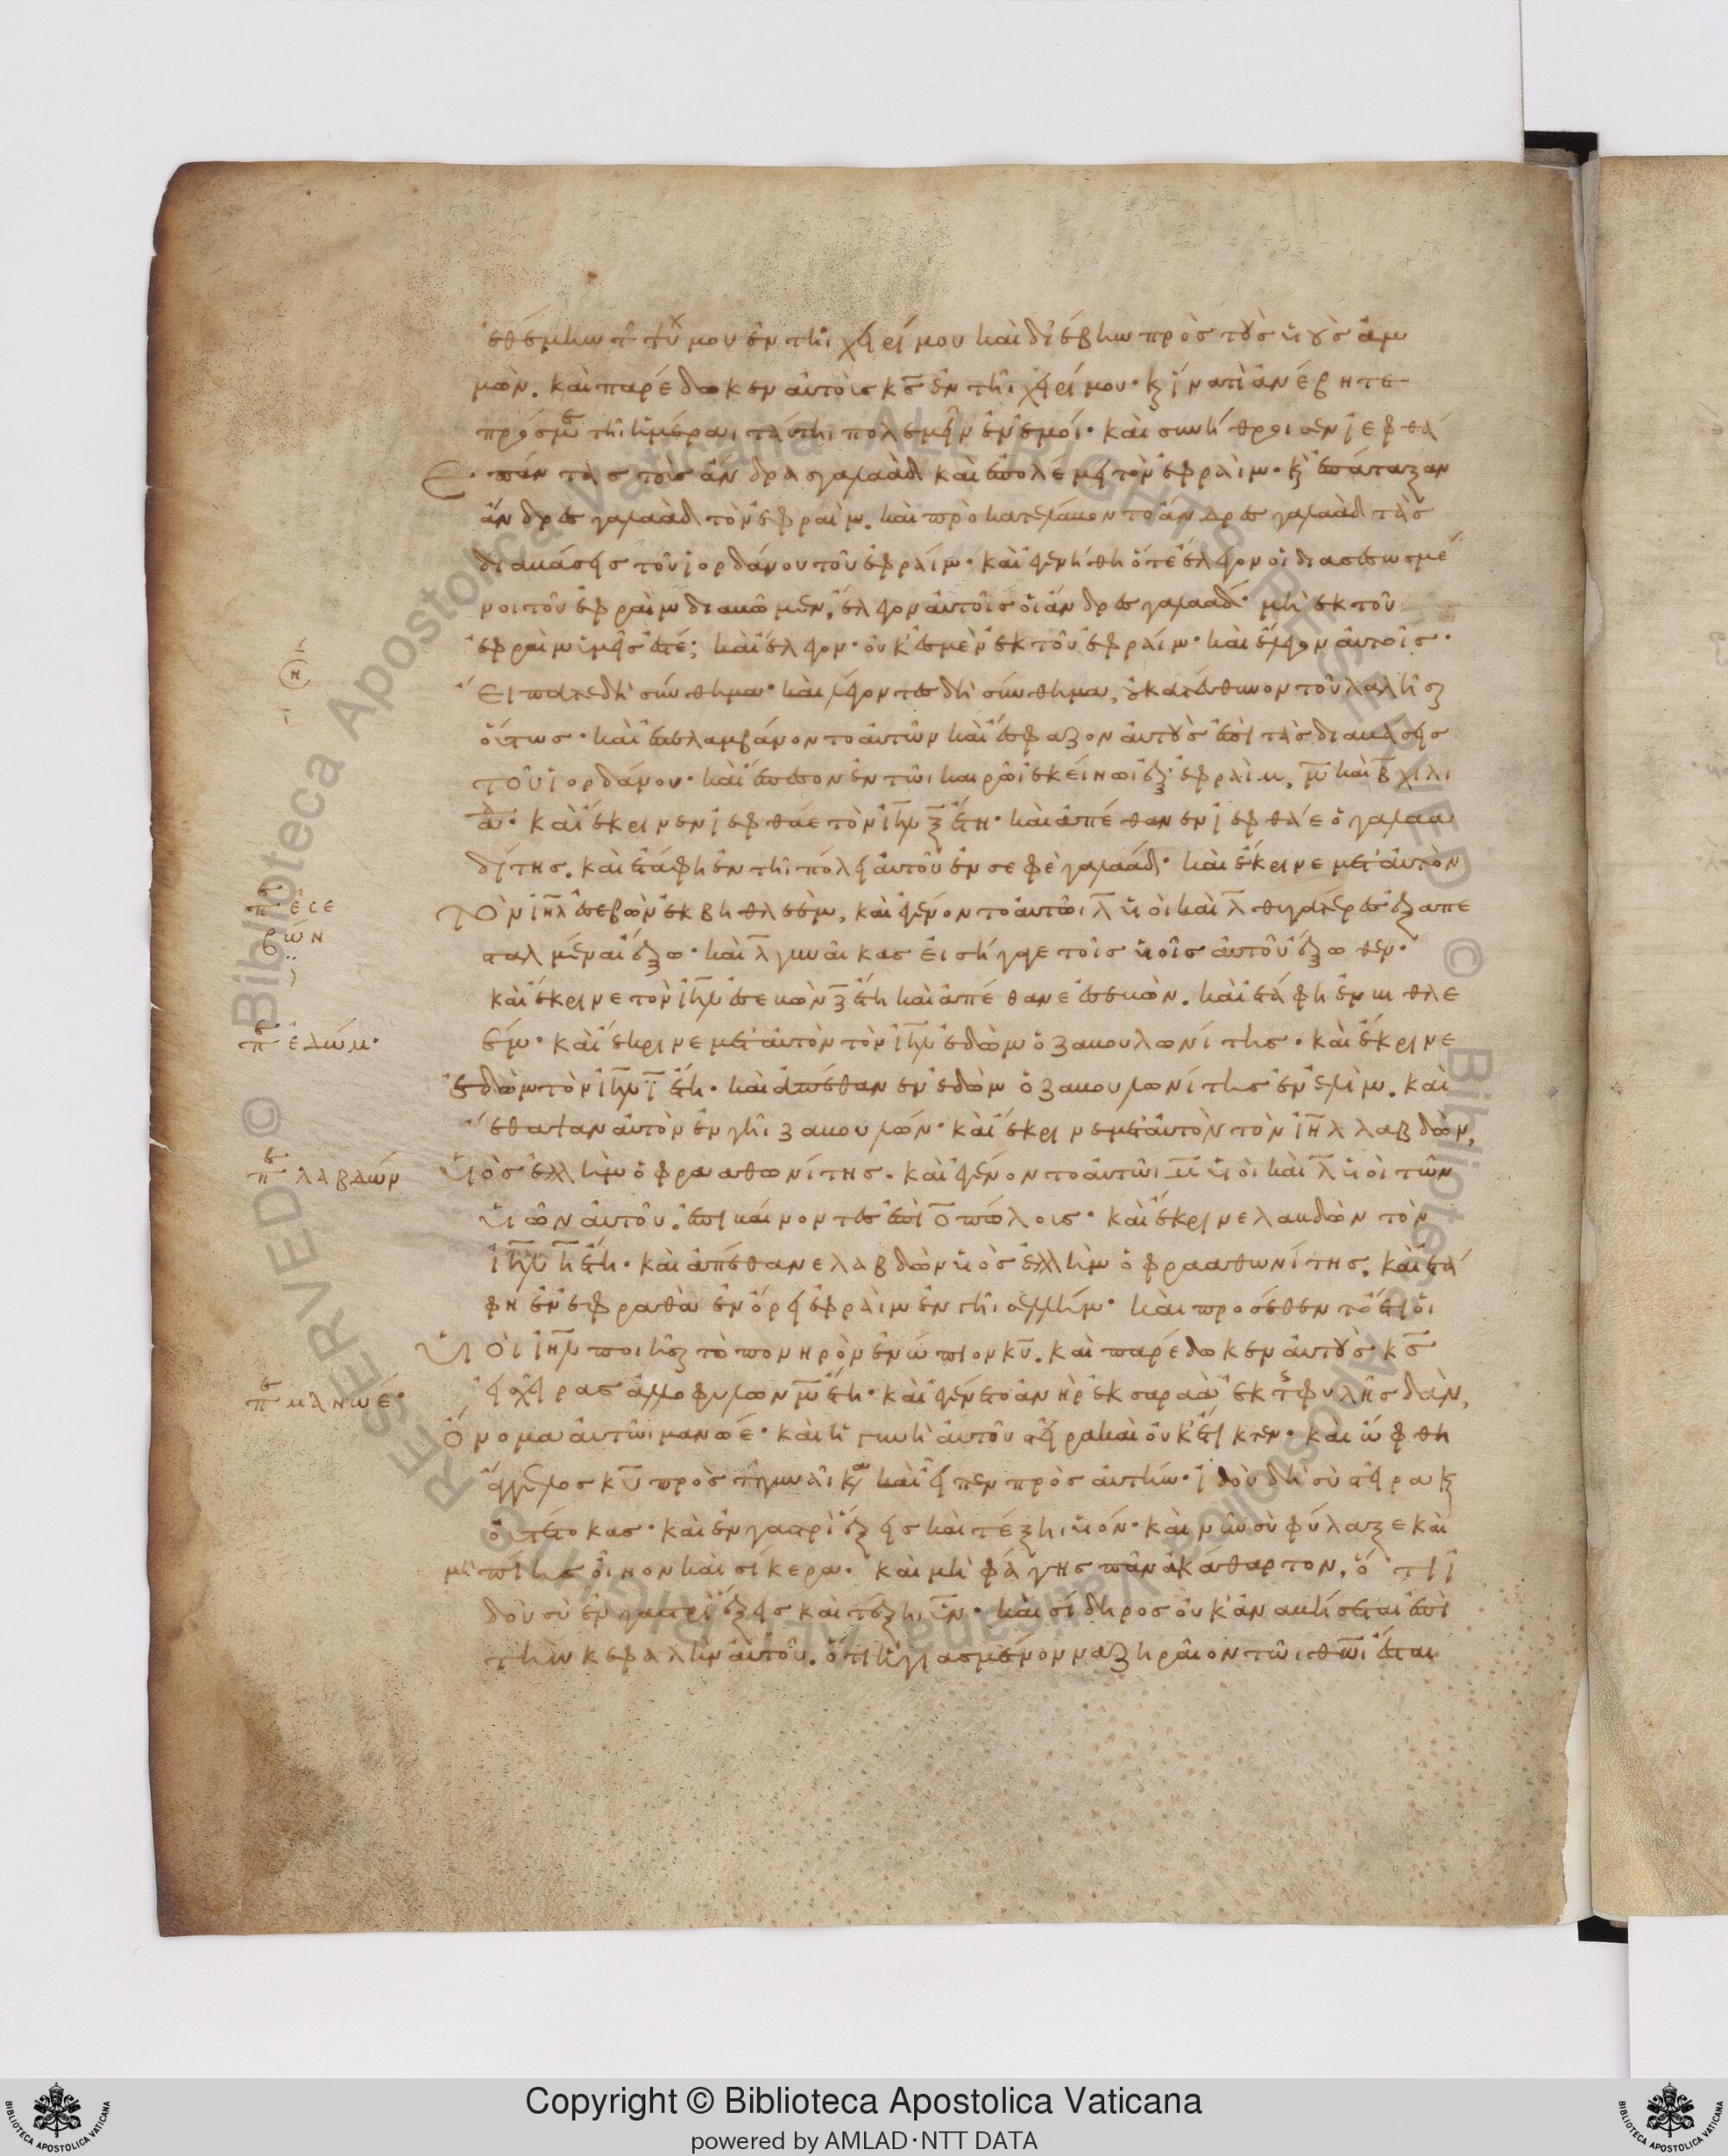 ἐθέμην τ ψυχ μου ἐν τῆι χειρί μου καὶ διέβην πρὸς τοὺς υἱοὺς ἀμ
μῶν. καὶ παρέδωκεν αὐτοὺς κς ἐν τῆι χειρί μου· κ ἵνατὶ ἀνέβητε
πρός με τῆι ἡμέραι ταύτηι πολεμεῖν ἐν ἐμοί· καὶ συνήθροισεν ἰεφθά
ε· πάντας τοὺς ἄνδρας γαλαὰδ καὶ ἐπολέμει τὸν ἐφράϊμ· κ ἐπάταξαν
ἄνδρες γαλαὰδ τὸν ἐφραὶμ. καὶ προκατελάβοντο ἄνδρες γαλαὰδ τὰς
διαβάσεις τοῦ ἰορδάνου τοῦ ἐφραίμ· καὶ ἐγενήθη ὅτε εἶπον οἱ διασεσωσμέ
νοι τοῦ ἐφραὶμ διαβῶμεν, εἶπον αὐτοῖς οἱ ἄνδρες γαλαάδ· μὴ ἐκ τοῦ
ἐφραὶμ ὑμεῖς ἐστέ; καὶ εἶπον· οὐκ ἐσμὲν ἐκ τοῦ ἐφραίμ· καὶ εἶπον αὐτοῖς·
εἴπατε δὴ σύνθημα· καὶ λέγοντες δὴ σύνθημα, κατεύθυνον τοῦ λαλῆσαι
οὕτως· καὶ ἐπελαμβάνοντο αὐτῶν καὶ ἔσφαζον αὐτοὺς ἐπὶ τὰς διαβάσεις
τοῦ ἰορδάνου· καὶ ἔπεσον ἐν τῶι καιρῶι ἐκείνωι ἐξ ἐφραὶμ, μ καὶ β χιλι
ὰ· καὶ ἔκρινεν ἰεφθάε τὸν ιηλ ξ ἔτη· καὶ ἀπέθανεν ἰεφθάε ὁ γαλαα
δίτης. καὶ ἐτάφη ἐν τῆι πόλει αὐτοῦ ἐν σεφὲ γαλαάδ· καὶ ἔκρινε μετ' αὐτὸν
τὸν ιηλ ἐσεβὼν ἐκ βηθλεὲμ, καὶ ἐγένοντο αὐτῶι λ υἱοὶ καὶ λ θυγατέρες ἐξαπε
σταλμέναι ἔξω· καὶ λ γυναῖκας εἰσήγαγε τοῖς υἱοῖς αὐτοῦ ἔξωθεν·
καὶ ἔκρινε τὸν ιηλ ἐσεβὼν ζ ἔτη καὶ ἀπέθανε ἐσεβὼν. καὶ ἐτάφη ἐν βηθλε
έμ· καὶ ἔκρινε μετ' αὐτὸν τὸν ιηλ ἐδὼμ ὁ ζαβουλωνίτης· καὶ ἔκρινε
ἐδὼμ τὸν ιηλ ι ἔτη· καὶ ἀπέθανεν ἐδὼμ ὁ ζαβουλωνίτης ἐν ἐλὶμ. καὶ
ἔθαψαν αὐτὸν ἐν γῆι ζαβουλών· καὶ ἔκρινε μετ' αὐτὸν τὸν ιηλ λαβδὼν,
υἱὸς ἐλλὴμ ὁ φρααθωνίτης. καὶ ἐγένοντο αὐτῶι μ υἱοὶ καὶ λ υἱοὶ τῶν
υἱῶν αὐτοῦ. ἐπιβαίνοντες ἐπὶ ο πώλους· καὶ ἔκρινε λαβδὼν τὸν
ιηλ η ἔτη· καὶ ἀπέθανε λαβδὼν υἱὸς ἐλλὴμ ὁ φρααθωνίτης. καὶ ἐτά
φη ἐν ἐφραθὰ ἐν ὄρει ἐφραὶμ ἐν τῆι σελλήμ· καὶ προσέθεντο ἔτι οἱ
υἱοὶ ιηλ ποιῆσαι τὸ πονηρὸν ἐνώπιον κυ. καὶ παρέδωκεν αὐτοὺς κς
εἰς χεῖρας ἀλλοφύλων μ ἔτη· καὶ ἐγένετο ἀνὴρ ἐκ σαραὰ ἐκ τς φυλῆς δὰν,
ὄνομα αὐτῶι μανωέ· καὶ ἡ γυνὴ αὐτοῦ στεῖρα καὶ οὐκ ἔτικτεν· καὶ ὤφθη
ἄγγελος κυ πρὸς τ γυναῖκα καὶ εἶπεν πρὸς αὐτήν· ἰδοὺ δὴ σὺ στεῖρα κ
οὐ τέτοκας· καὶ ἐν γαστρὶ ἕξεις καὶ τέξηι υἱόν· καὶ νῦν σὺ φύλαξε καὶ
μὴ πίῃς οἶνον καὶ σίκερα· καὶ μὴ φάγῃς πᾶν ἀκάθαρτον, ὅτι ἰ
δοὺ σὺ ἐν γαστρὶ ἕξεις καὶ τέξηι υν· καὶ σίδηρος οὐκ ἀναβήσεται ἐπὶ
τὴν κεφαλὴν αὐτοῦ. ὅτι ἡγιασμένον ναζηραῖον τῶι θωι ἔσται
η
π ἐσε
βών
π ἐδώμ·
π λαβδών
π μανωέ·
© Biblioteca Apostolica Vaticana ALL RIGHTS RESERVED
Copyright © Biblioteca Apostolica Vaticana
powered by AMLAD·NTT DATA
BIBLIOTECA APOSTOLICA VATICANA
BIBLIOTECA APOSTOLICA VATICANA